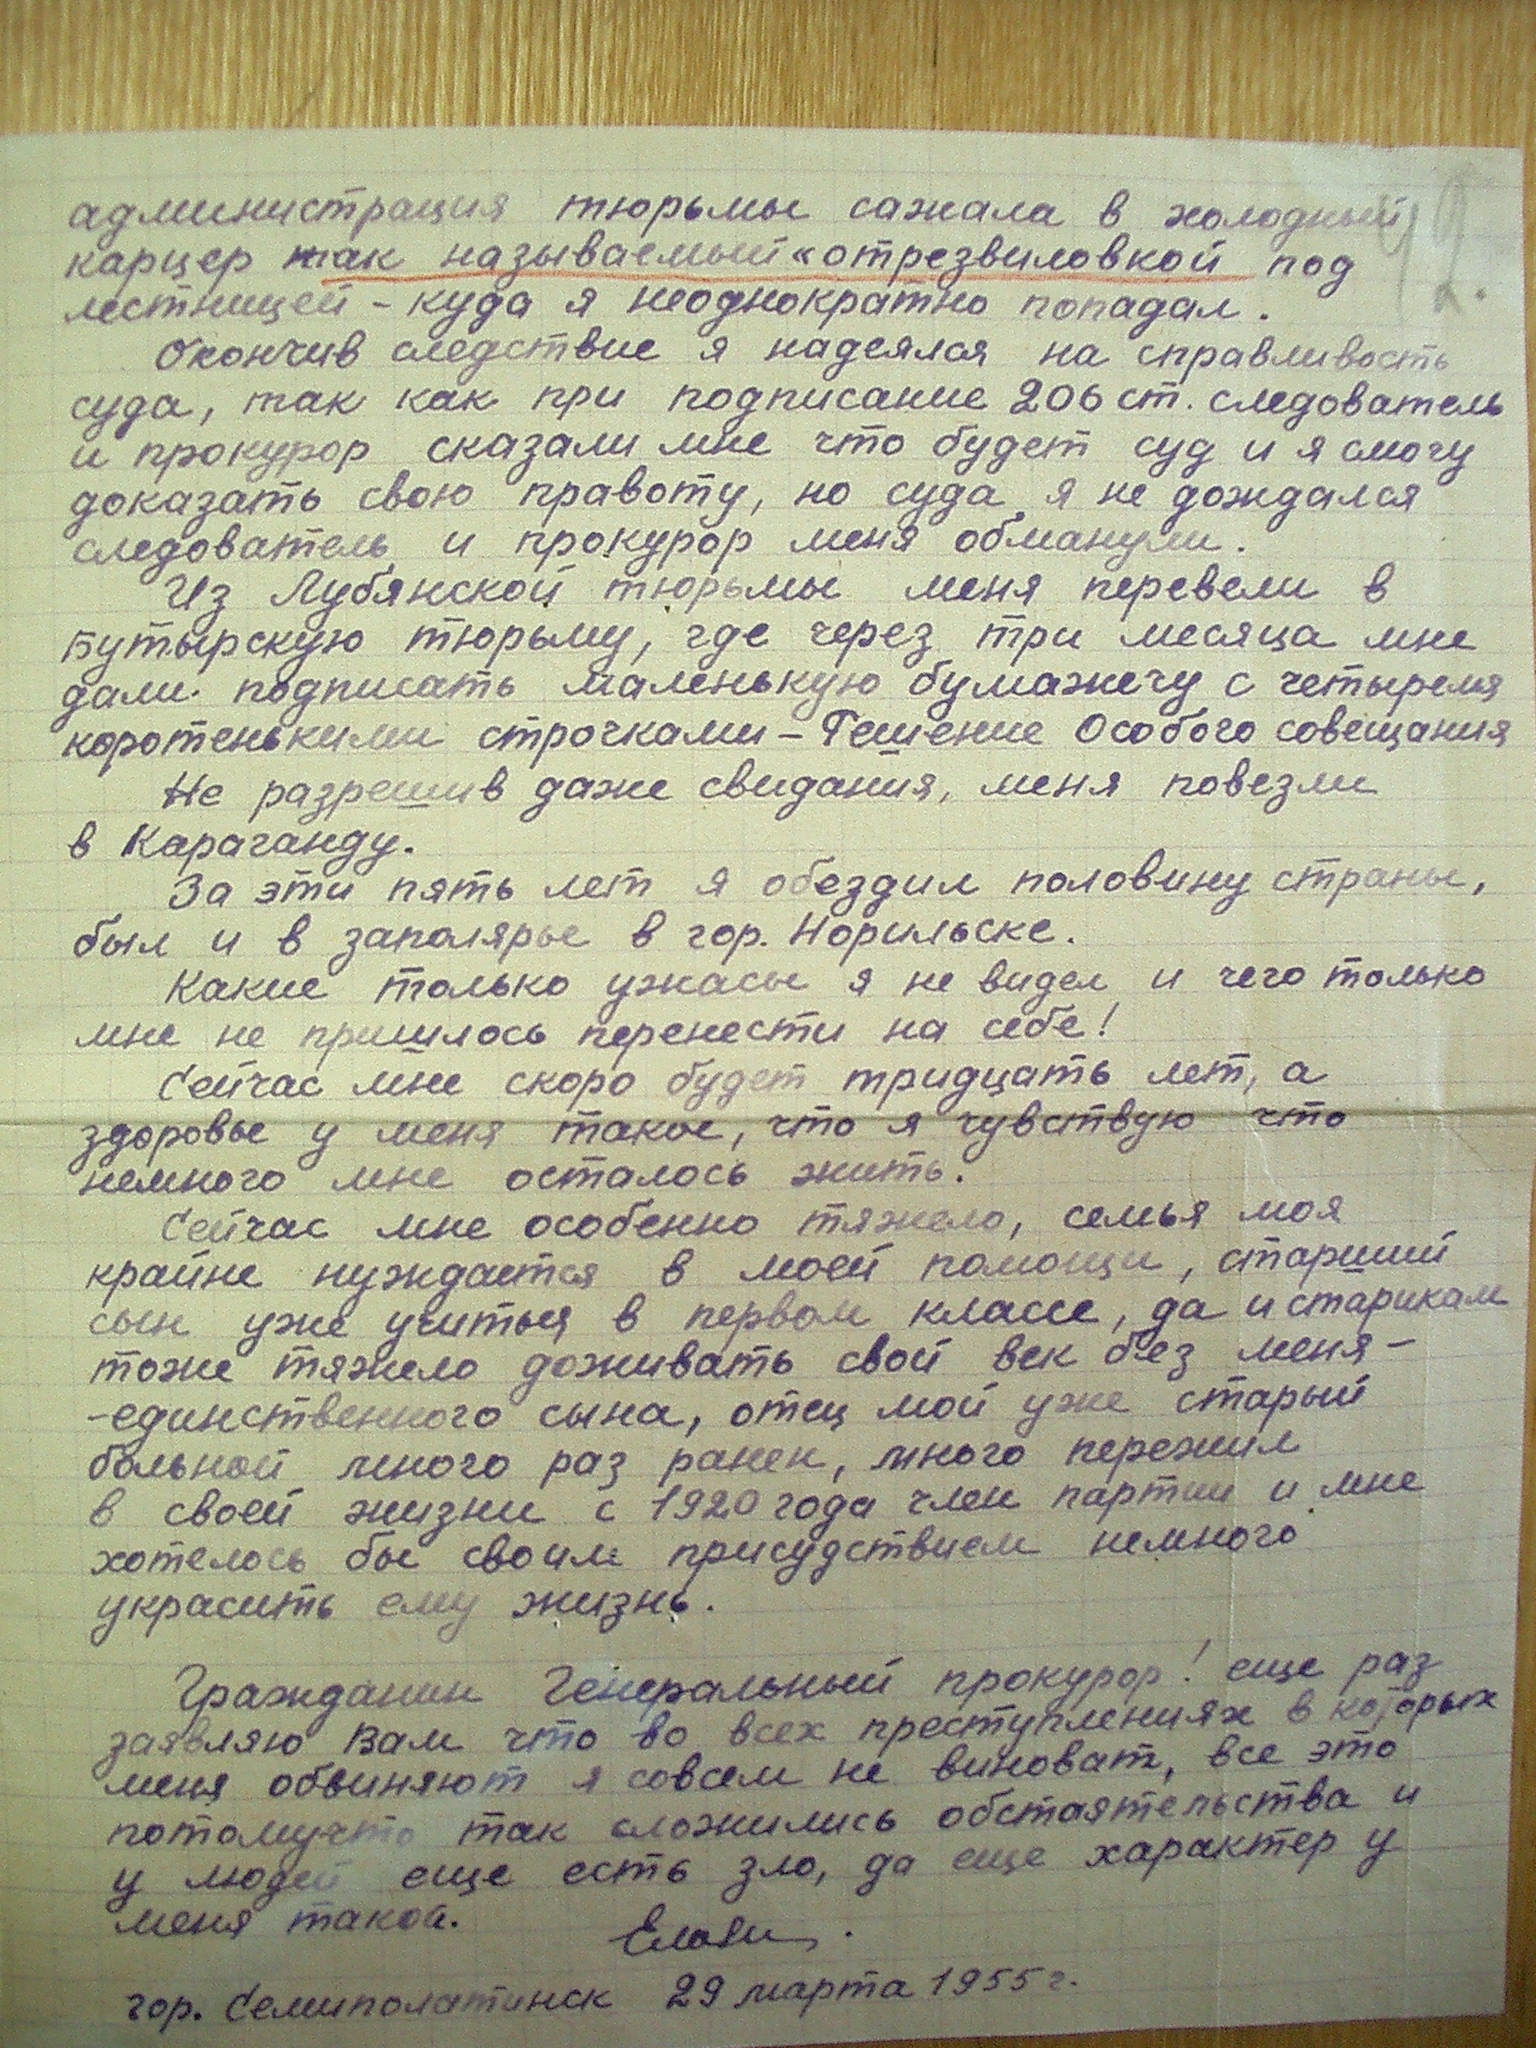 42.
администрация тюрьмы сажала в холодный
карцер так называемый „отрезвиловкой под
лестницей – куда я неоднократно попадал.
Окончив следствие я надеялся на справливость
суда, так как при подписание 206 ст. следователь
и прокурор сказали мне что будет суд и я смогу
доказать свою правоту, но суда я не дождался
следователь и прокурор меня обманули.
Из Лубянской тюрьмы меня перевели в
Бутырскую тюрьму, где через три месяца мне
дали подписать маленькую бумажечу с четыремя
коротенькими строчками – Решение Особого совещания
Не разрешив даже свидания, меня повезли
в Караганду.
За эти пять лет я обездил половину страны,
был и в заполярье в гор. Норильске.
Какие только ужасы я не видел и чего только
мне не пришлось перенести на себе!
Сейчас мне скоро будет тридцать лет, а
здоровье у меня такое, что я чувствую что
немного мне осталось жить.
Сейчас мне особенно тяжело, семья моя
крайне нуждается в моей помощи, старший
сын уже учиться в первом классе, да и старикам
тоже тяжело доживать свой век без меня –
– единственного сына, отец мой уже старый
больной много раз ранен, много пережил
в своей жизни с 1920 года член партии и мне
хотелось бы своим присудствием немного
украсить ему жизнь.
Гражданин Генеральный прокурор! еще раз
заявляю Вам что во всех преступлениях в которых
меня обвиняют я совсем не виноват, все это
потомучто так сложились обстаятельства и
у людей еще есть зло, да еще характер у
меня такой.
гор. Семиполатинск 29 марта 1955 г.